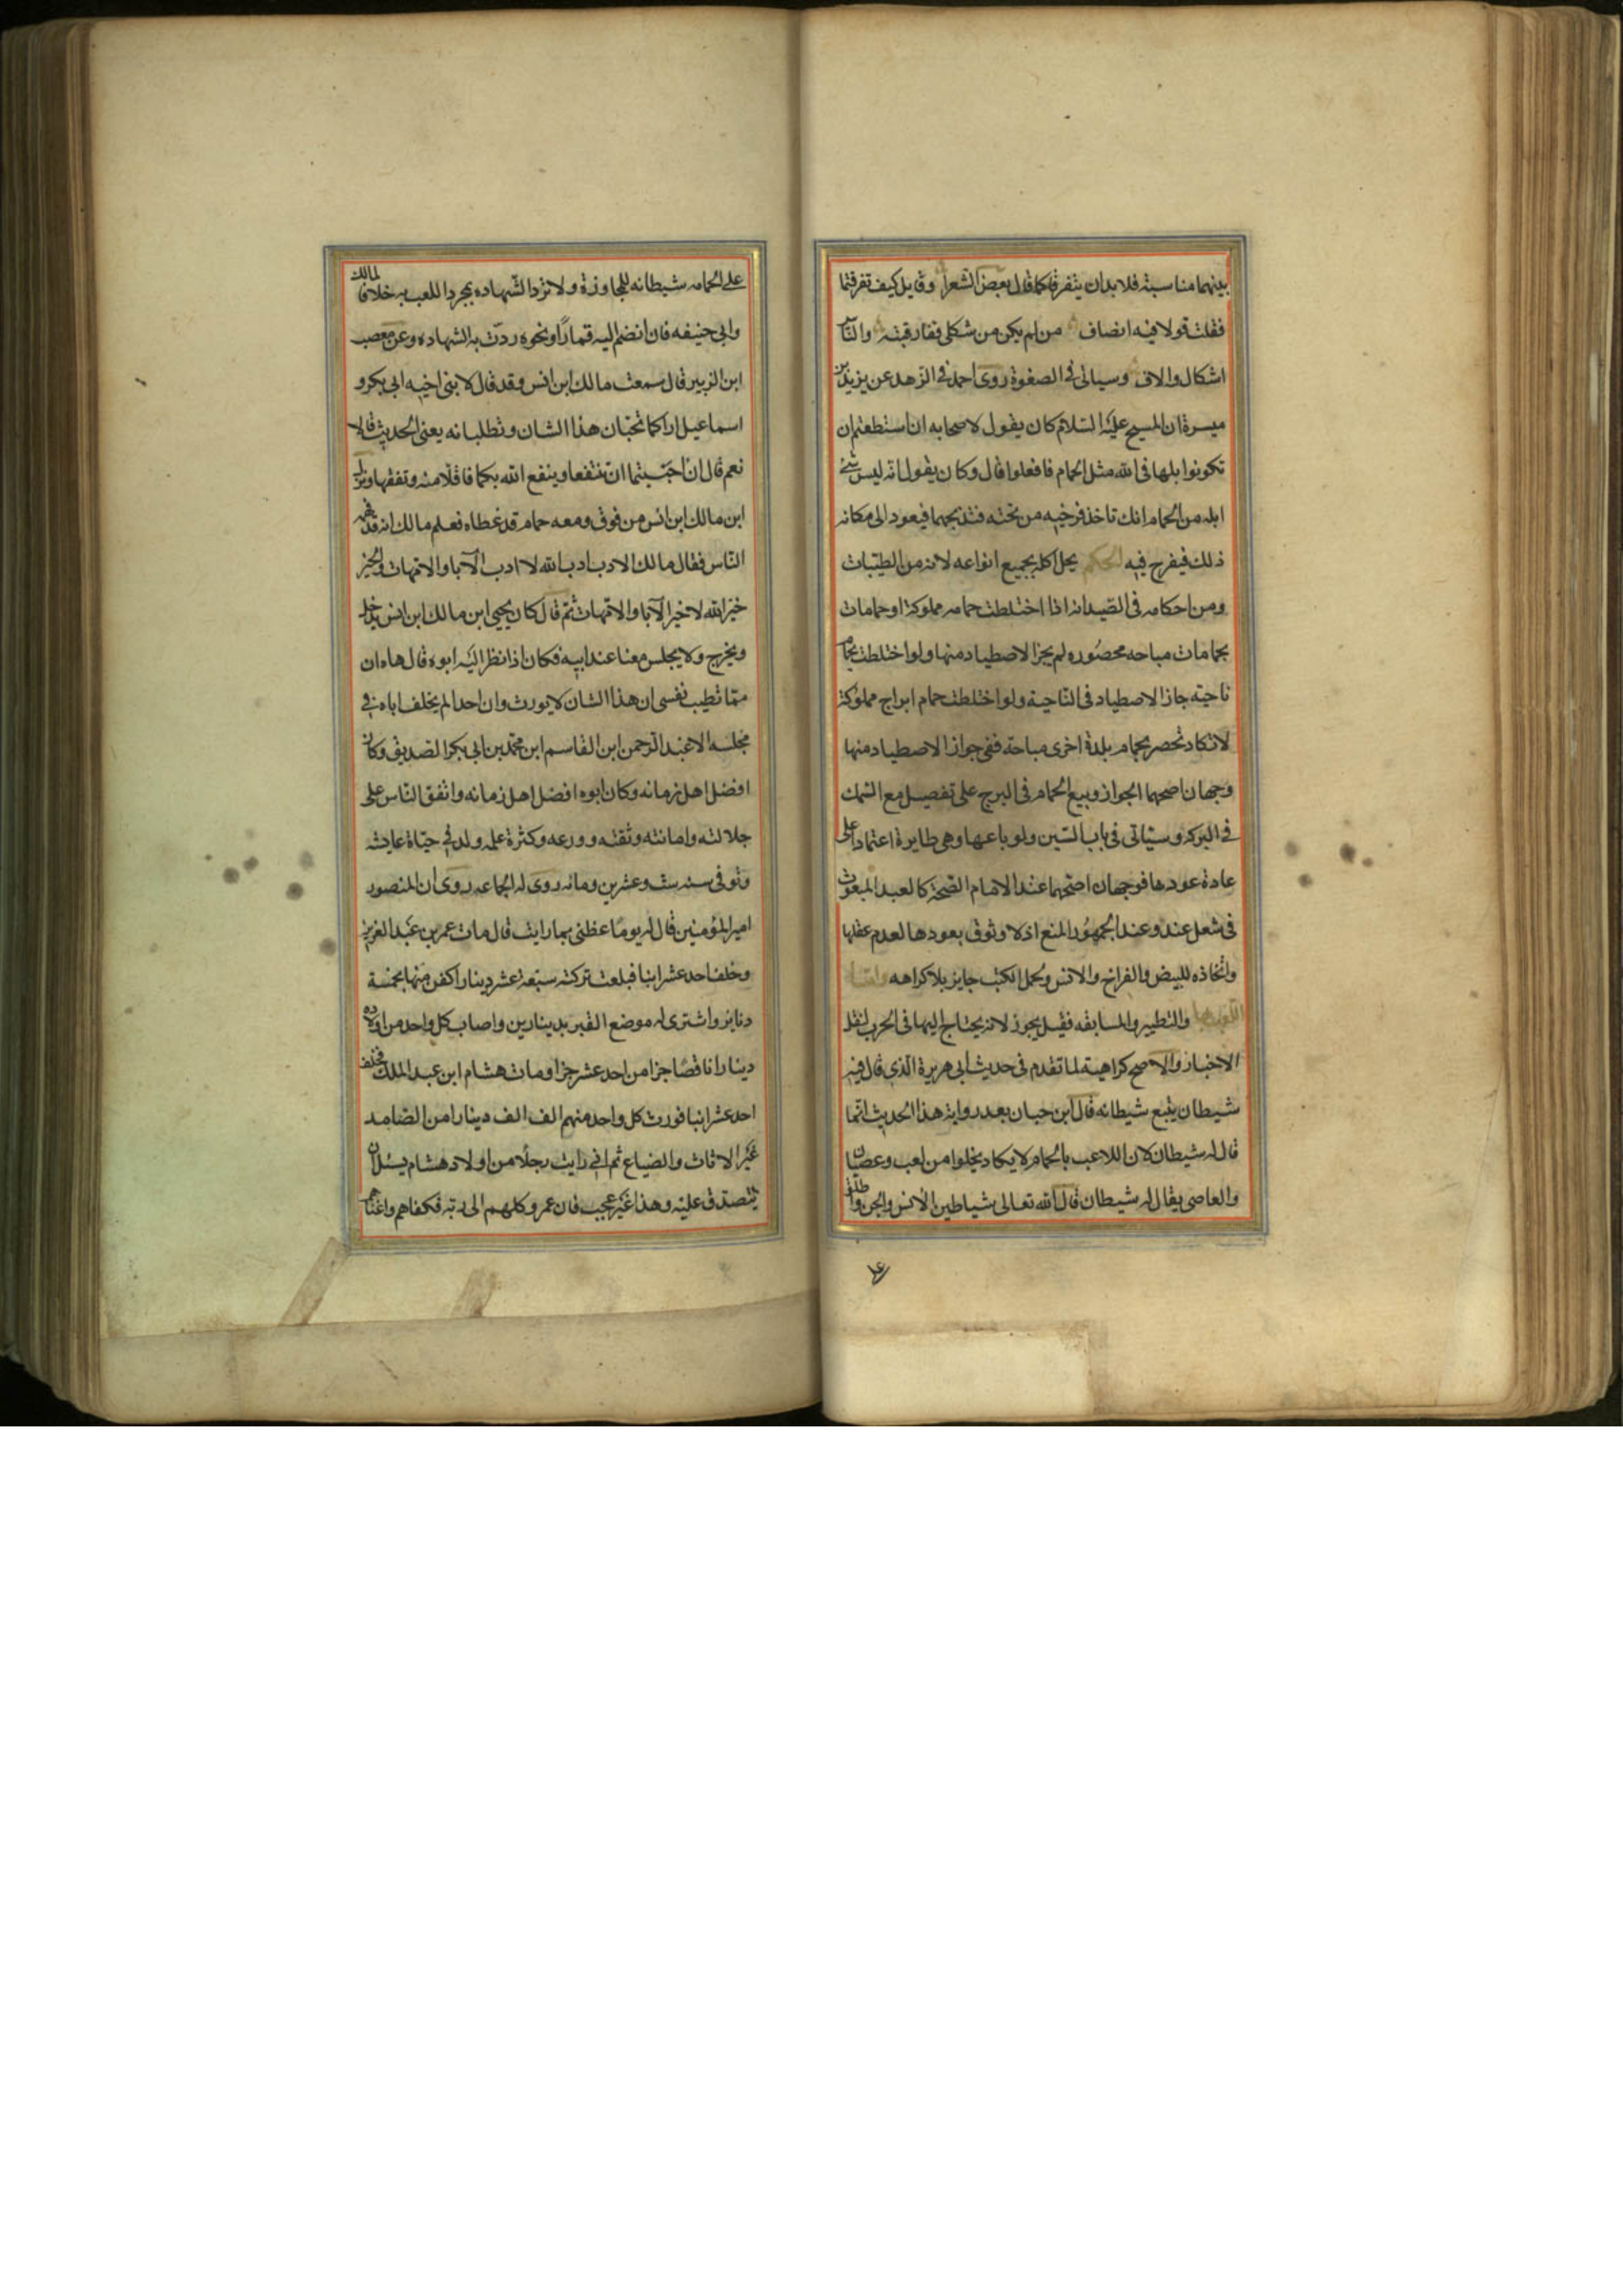 بينهما مناسبة فلا بد ان يتفرقا كما قال بعض الشعرا وقايل كيف تفرقتما
فقلت قولا فيه انصاف من لم يكن من شكلى ففارقته والناس
اشكال والاف وسياتى فى الصعوة روى احمد فى الزهد عن يزيد بن
ميسرة ان المسيح عليه السلام كان يقول لاصحابه ان استطعتم ان
تكونوا بلها فى الله مثل الحمام فافعلوا قال وكان يقول انه ليس شئ
ابله من الحمام انك تاخذ فرخيه من تحته فتذبحهما فيعود الى مكانه
ذلك فيفرخ فيه الحكم يحل اكله بجميع انواعه لانه من الطيبات
ومن احكامه فى الصيد انه اذا اختلطت حمامه مملوكة او حمامات
بحمامات مباحه محصوره لم يجز الاصطياد منها ولو اختلطت بحمام
ناحية جاز الاصطياد فى الناحية ولو اختلطت حمام ابراج مملوكة
لا تكاد تحصر بحمام بلدة اخرى مباحة ففى جواز الاصطياد منها
وجهان اصحهما الجواز وبيع الحمام فى البرج على تفصيل مع السمك
فى البركه وسياتى فى باب السين ولو باعها وهى طايرة اعتمادا على
عادة عودها فوجهان اصحهما عند الامام الصحة كالعبد المبعوث
فى شغل عنده وعند الجمهور المنع اذ لا وثوق بعودها لعدم عقلها
واتخاذه للبيض والفراخ والانس وحمل الكتب جايز بلا كراهه واما
اللعب بها والتطيير والمسابقه فقيل يجوز لانه يحتاج اليها فى الحرب لنقل
الاخبار والاصح كراهيته لما تقدم فى حديث ابى هريرة الذى قال فيه
شيطان يتبع شيطانه قال ابن حبان بعد رواية هذا الحديث انما
قال له شيطان لان اللاعب بالحمام لا يكاد يخلوا من لعب وعصيان
والعاصى يقال له شيطان قال الله تعالى شياطين الانس والجن واطلق
على الحمامه شيطانه للمجاوزة ولا ترد الشهاده بمجرد اللعب به خلافا لمالك
وابى حنيفه فان انضم اليه قمارًا ونحوه ردت به الشهاده وعن مصعب
ابن الزبير قال سمعت مالك ابن انس وقد قال لابنى اخيه ابى بكر و
اسماعيل اراكما تحبان هذا الشان وتطلبانه يعنى الحديث قالا
نعم قال ان احببتما ان تنتفعا وينفع الله بكما فاقلا منه وتفقها ونزل
ابن مالك ابن انس من فوق ومعه حمام قد غطاه فعلم مالك انه قد فهمه
الناس فقال مالك الادب ادب الله لا ادب الآبا والامهات والخير
خير الله لا خير الآبا والامهات ثم قال كان يحيى ابن مالك ابن انس يدخل
ويخرج ولا يجلس معنا عند ابيه فكان اذا نظر اليه ابوه قال هاه ان
مما تطيب نفسى ان هذا الشان لا يورث وان احدا لم يخلف اباه فى
مجلسه الا عبد الرحمن ابن القاسم ابن محمد بن ابى بكر الصديق وكان
افضل اهل زمانه وكان ابوه افضل اهل زمانه واتفق الناس على
جلالته وامانته وثقته وورعه وكثرة علمه ولد فى حياة عايشه
وتوفى سنه ست وعشرين ومائه روى له الجماعه روى ان المنصور
امير المؤمنين قال له يومًا عظنى بما رايت قال مات عمر بن عبد العزيز
وخلف احد عشر ابنا فبلغت تركته سبعة عشر دينارا كفن منها بخمسة
دنانير واشترى له موضع القبر بدينارين واصاب كل واحد من اولاده
دينارا ناقصًا جزا من احد عشر جزا ومات هشام ابن عبد الملك فخلف
احد عشر ابنا فورث كل واحد منهم الف الف دينارا من الصامد
غير الاثاث والضياع ثم انى رايت رجلا من اولاد هشام يسئل ان
يتصدق عليه وهذا غير عجيب فان عمر وكلهم الى ربه فكفاهم واغناهم